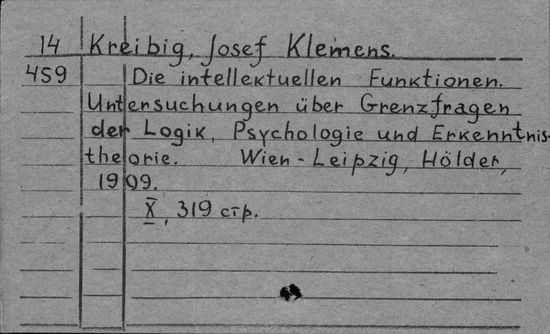 14 Kreibig, Josef Klemens.
459 Die intellektuellen Funktionen.
Untersuchungen über Grenzfragen
der Logik, Psychologie und Erkenntnis-
theorie. Wien-Leipzig, Hölder,
1909.
X, 319 стр.